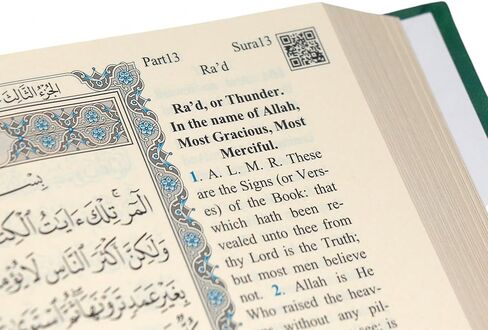 Part13 Sura13
Ra'd
الجزء الثالث
Ra'd, or Thunder.
In the name of Allah,
Most Gracious, Most
Merciful.
1. A. L. M. R. These
are the Signs (or Vers-
es) of the Book: that
which hath been re-
vealed unto thee from
thy Lord is the Truth;
but most men believe
not. 2. Allah is He
Who raised the heav-
without any pil-
الٓمٓر تِلْكَ ءَايَٰتُ
وَلَٰكِنَّ أَكْثَرَ ٱلنَّاسِ لَا
بِغَيْرِ عَمَدٍ تَرَوْنَهَا ثُمَّ